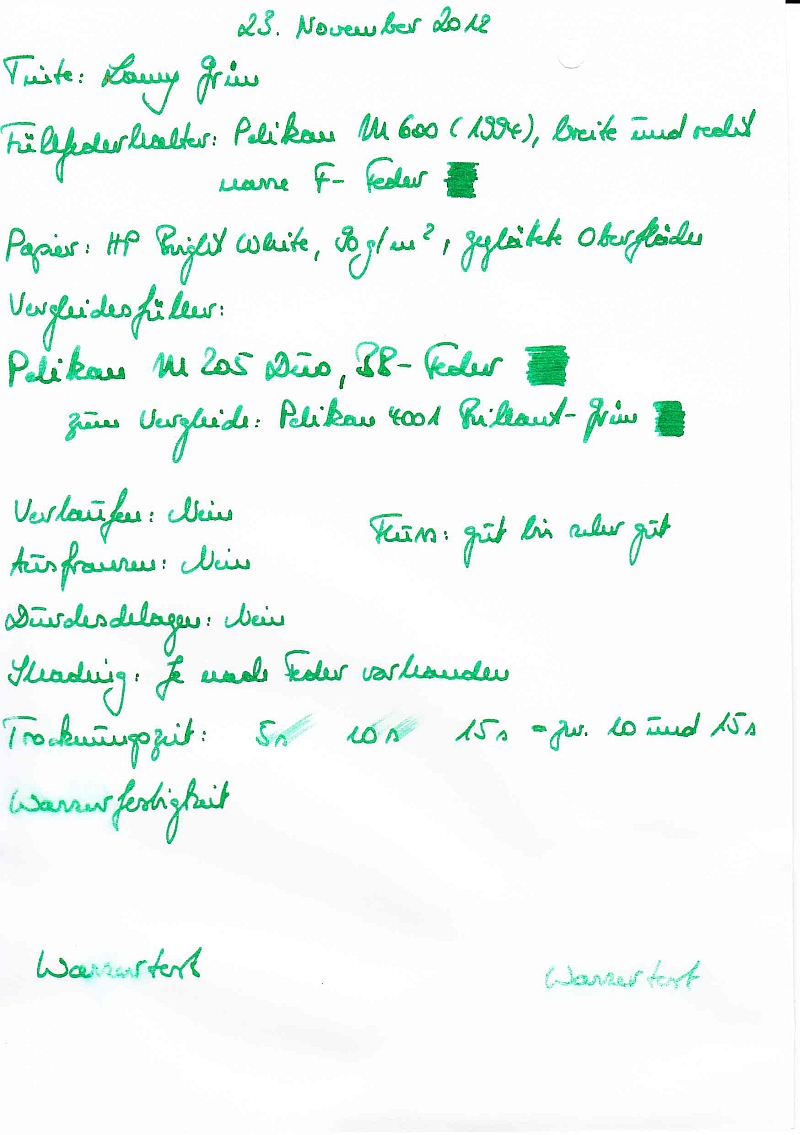 23. November 2012
Tinte: Lamy Grün
Füllfederhalter: Pelikan M 600 (1994), breite und recht
nasse F- Feder
Papier: HP Bright White, 90 g/m², geglättete Oberfläche
Vergleichsfüller:
Pelikan M 205 Duo, BB- Feder
zum Vergleich: Pelikan 4001 Brillant- Grün
Verlaufen: Nein
Fluss: gut bis sehr gut
Ausfransen: Nein
Durchschlagen: Nein
Shading: Je nach Feder vorhanden
Trocknungszeit: 5s 10s 15s = zw. 10 und 15s
Wasserfestigkeit
Wassertest Wassertest